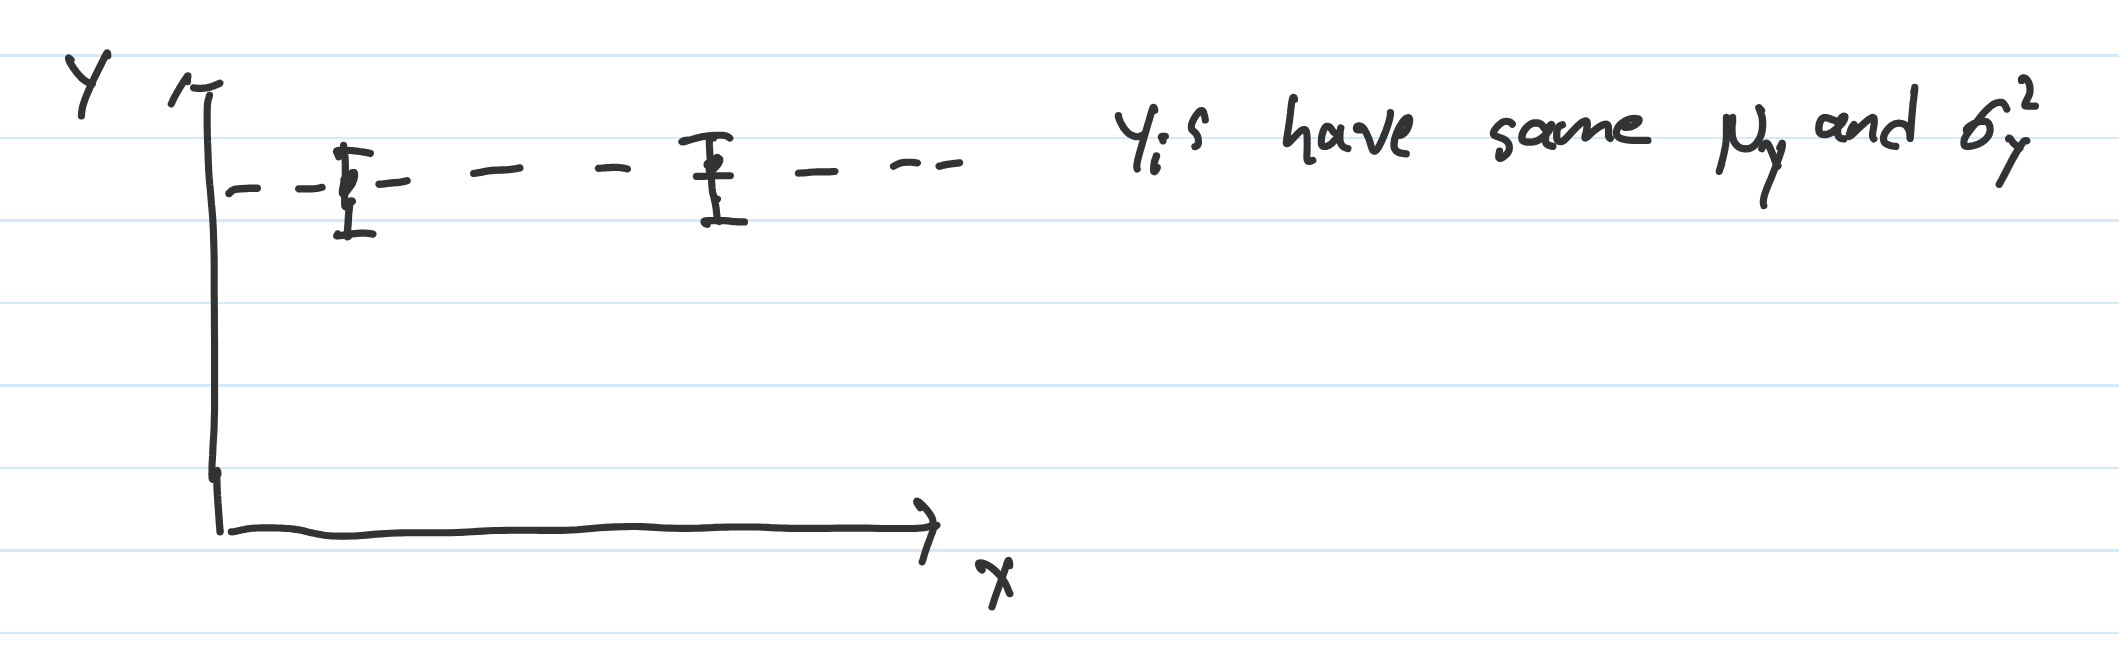 Y
Yi's have same μy and σy²
x